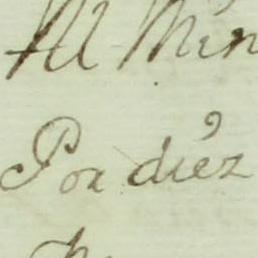 Al Min
Por diez